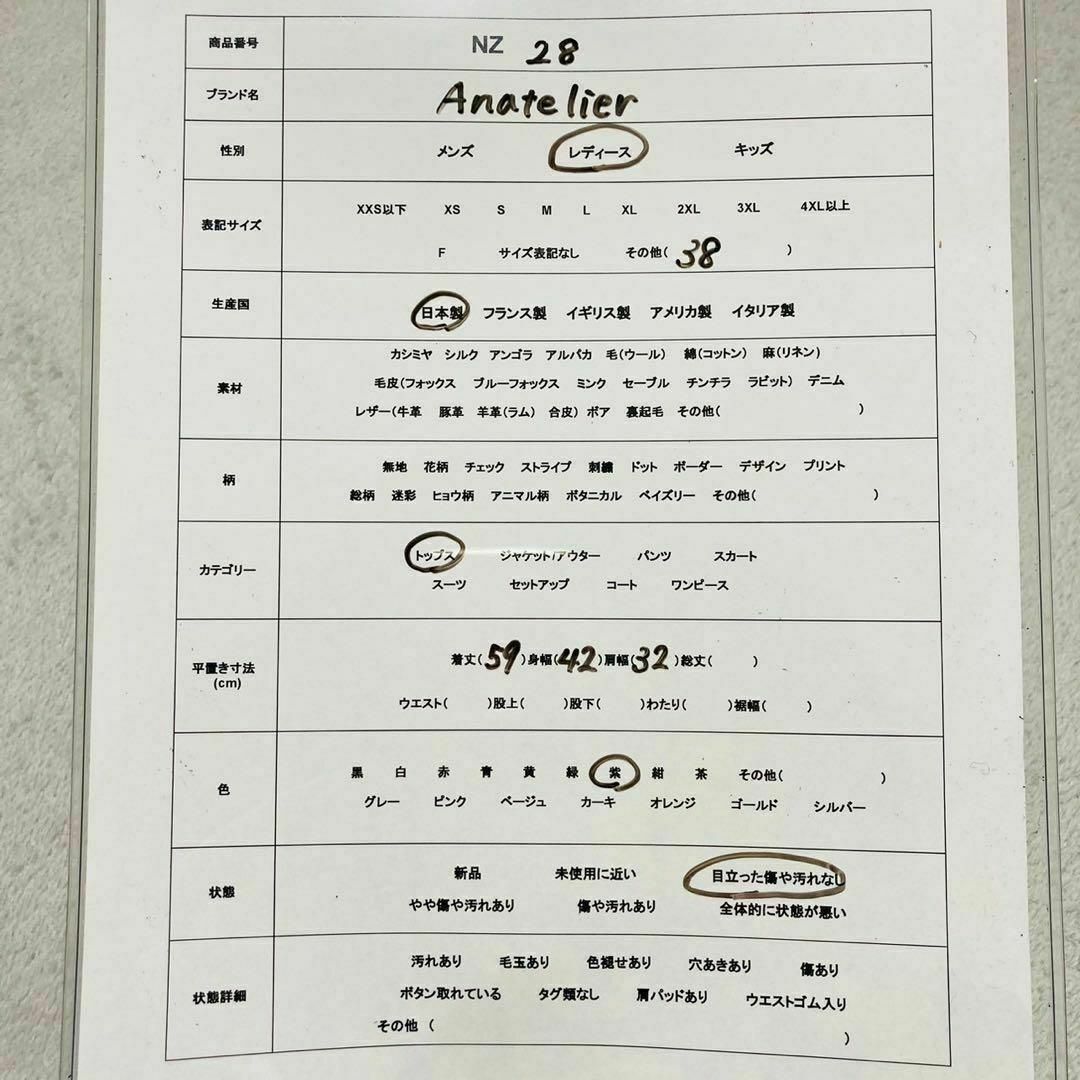 商品番号 NZ 28
ブランド名 Anatelier
性別 メンズ レディース キッズ
表記サイズ
XXS以下 XS S M L XL 2XL 3XL 4XL以上
F サイズ表記なし その他( 38 )
生産国 日本製 フランス製 イギリス製 アメリカ製 イタリア製
素材
カシミヤ シルク アンゴラ アルパカ 毛(ウール) 綿(コットン) 麻(リネン)
毛皮(フォックス ブルーフォックス ミンク セーブル チンチラ ラビット) デニム
レザー(牛革 豚革 羊革(ラム) 合皮) ボア 裏起毛 その他( )
柄
無地 花柄 チェック ストライプ 刺繍 ドット ボーダー デザイン プリント
総柄 迷彩 ヒョウ柄 アニマル柄 ボタニカル ペイズリー その他( )
カテゴリー
トップス ジャケット/アウター パンツ スカート
スーツ セットアップ コート ワンピース
平置き寸法
(cm)
着丈( 59 )身幅( 42 )肩幅( 32 )総丈( )
ウエスト( )股上( )股下( )わたり( )裾幅( )
色
黒 白 赤 青 黄 緑 紫 紺 茶 その他( )
グレー ピンク ベージュ カーキ オレンジ ゴールド シルバー
状態
新品 未使用に近い 目立った傷や汚れなし
やや傷や汚れあり 傷や汚れあり 全体的に状態が悪い
状態詳細
汚れあり 毛玉あり 色褪せあり 穴あきあり 傷あり
ボタン取れている タグ類なし 肩パッドあり ウエストゴム入り
その他 ( )